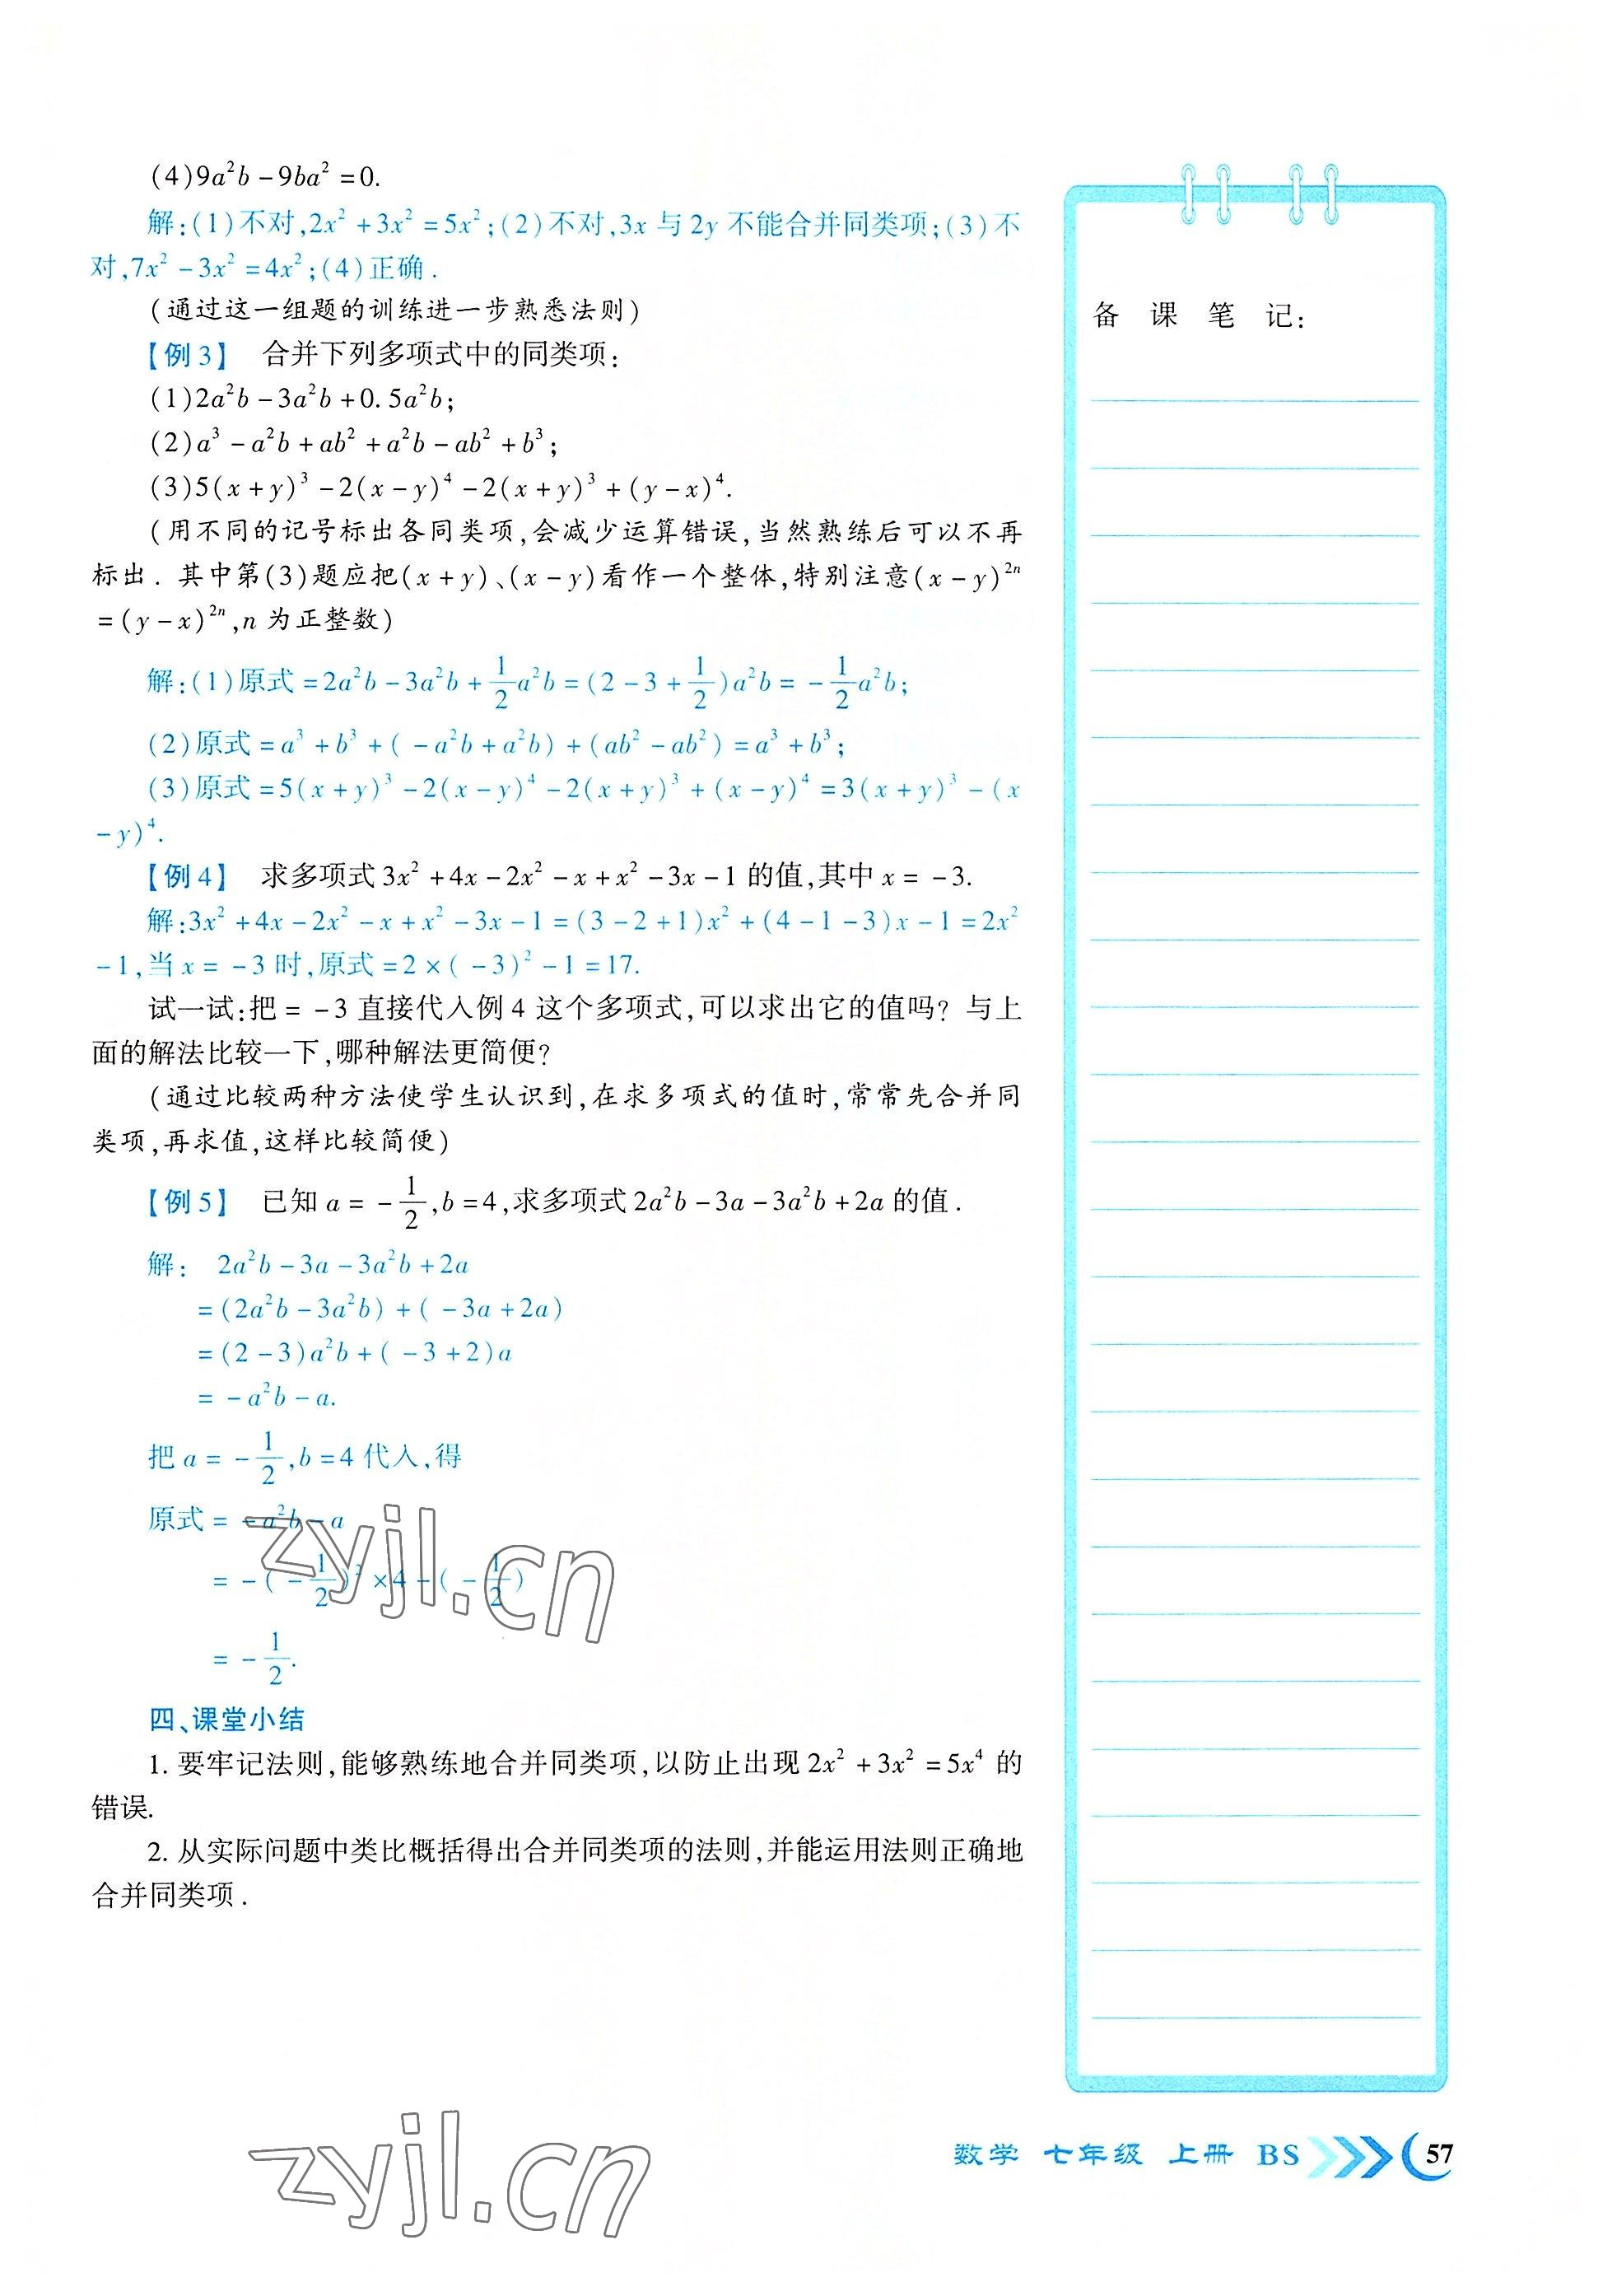 (4)9a²b－9ba²＝0.
解:(1)不对,2x²＋3x²＝5x²;(2)不对,3x 与 2y 不能合并同类项;(3)不
对,7x²－3x²＝4x²;(4)正确.
(通过这一组题的训练进一步熟悉法则)
【例3】 合并下列多项式中的同类项:
(1)2a²b－3a²b＋0.5a²b;
(2)a³－a²b＋ab²＋a²b－ab²＋b³;
(3)5(x＋y)³－2(x－y)⁴－2(x＋y)³＋(y－x)⁴.
(用不同的记号标出各同类项,会减少运算错误,当然熟练后可以不再
标出. 其中第(3)题应把(x＋y)、(x－y)看作一个整体,特别注意(x－y)²ⁿ
＝(y－x)²ⁿ,n 为正整数)
解:(1)原式＝2a²b－3a²b＋1/2a²b＝(2－3＋1/2)a²b＝－1/2a²b;
(2)原式＝a³＋b³＋(－a²b＋a²b)＋(ab²－ab²)＝a³＋b³;
(3)原式＝5(x＋y)³－2(x－y)⁴－2(x＋y)³＋(x－y)⁴＝3(x＋y)³－(x
－y)⁴.
【例4】 求多项式 3x²＋4x－2x²－x＋x²－3x－1 的值,其中 x＝－3.
解:3x²＋4x－2x²－x＋x²－3x－1＝(3－2＋1)x²＋(4－1－3)x－1＝2x²
－1,当 x＝－3 时,原式＝2×(－3)²－1＝17.
试一试:把＝－3 直接代入例 4 这个多项式,可以求出它的值吗? 与上
面的解法比较一下,哪种解法更简便?
(通过比较两种方法使学生认识到,在求多项式的值时,常常先合并同
类项,再求值,这样比较简便)
【例5】 已知 a＝－1/2,b＝4,求多项式 2a²b－3a－3a²b＋2a 的值.
解: 2a²b－3a－3a²b＋2a
＝(2a²b－3a²b)＋(－3a＋2a)
＝(2－3)a²b＋(－3＋2)a
＝－a²b－a.
把 a＝－1/2,b＝4 代入,得
原式＝－a²b－a
＝－(－1/2)²×4－(－1/2)
＝－1/2.
四、课堂小结
1. 要牢记法则,能够熟练地合并同类项,以防止出现 2x²＋3x²＝5x⁴ 的
错误.
2. 从实际问题中类比概括得出合并同类项的法则,并能运用法则正确地
合并同类项.
备 课 笔 记:
zyjl.cn
zyjl.cn
数学 七年级 上册 BS 57